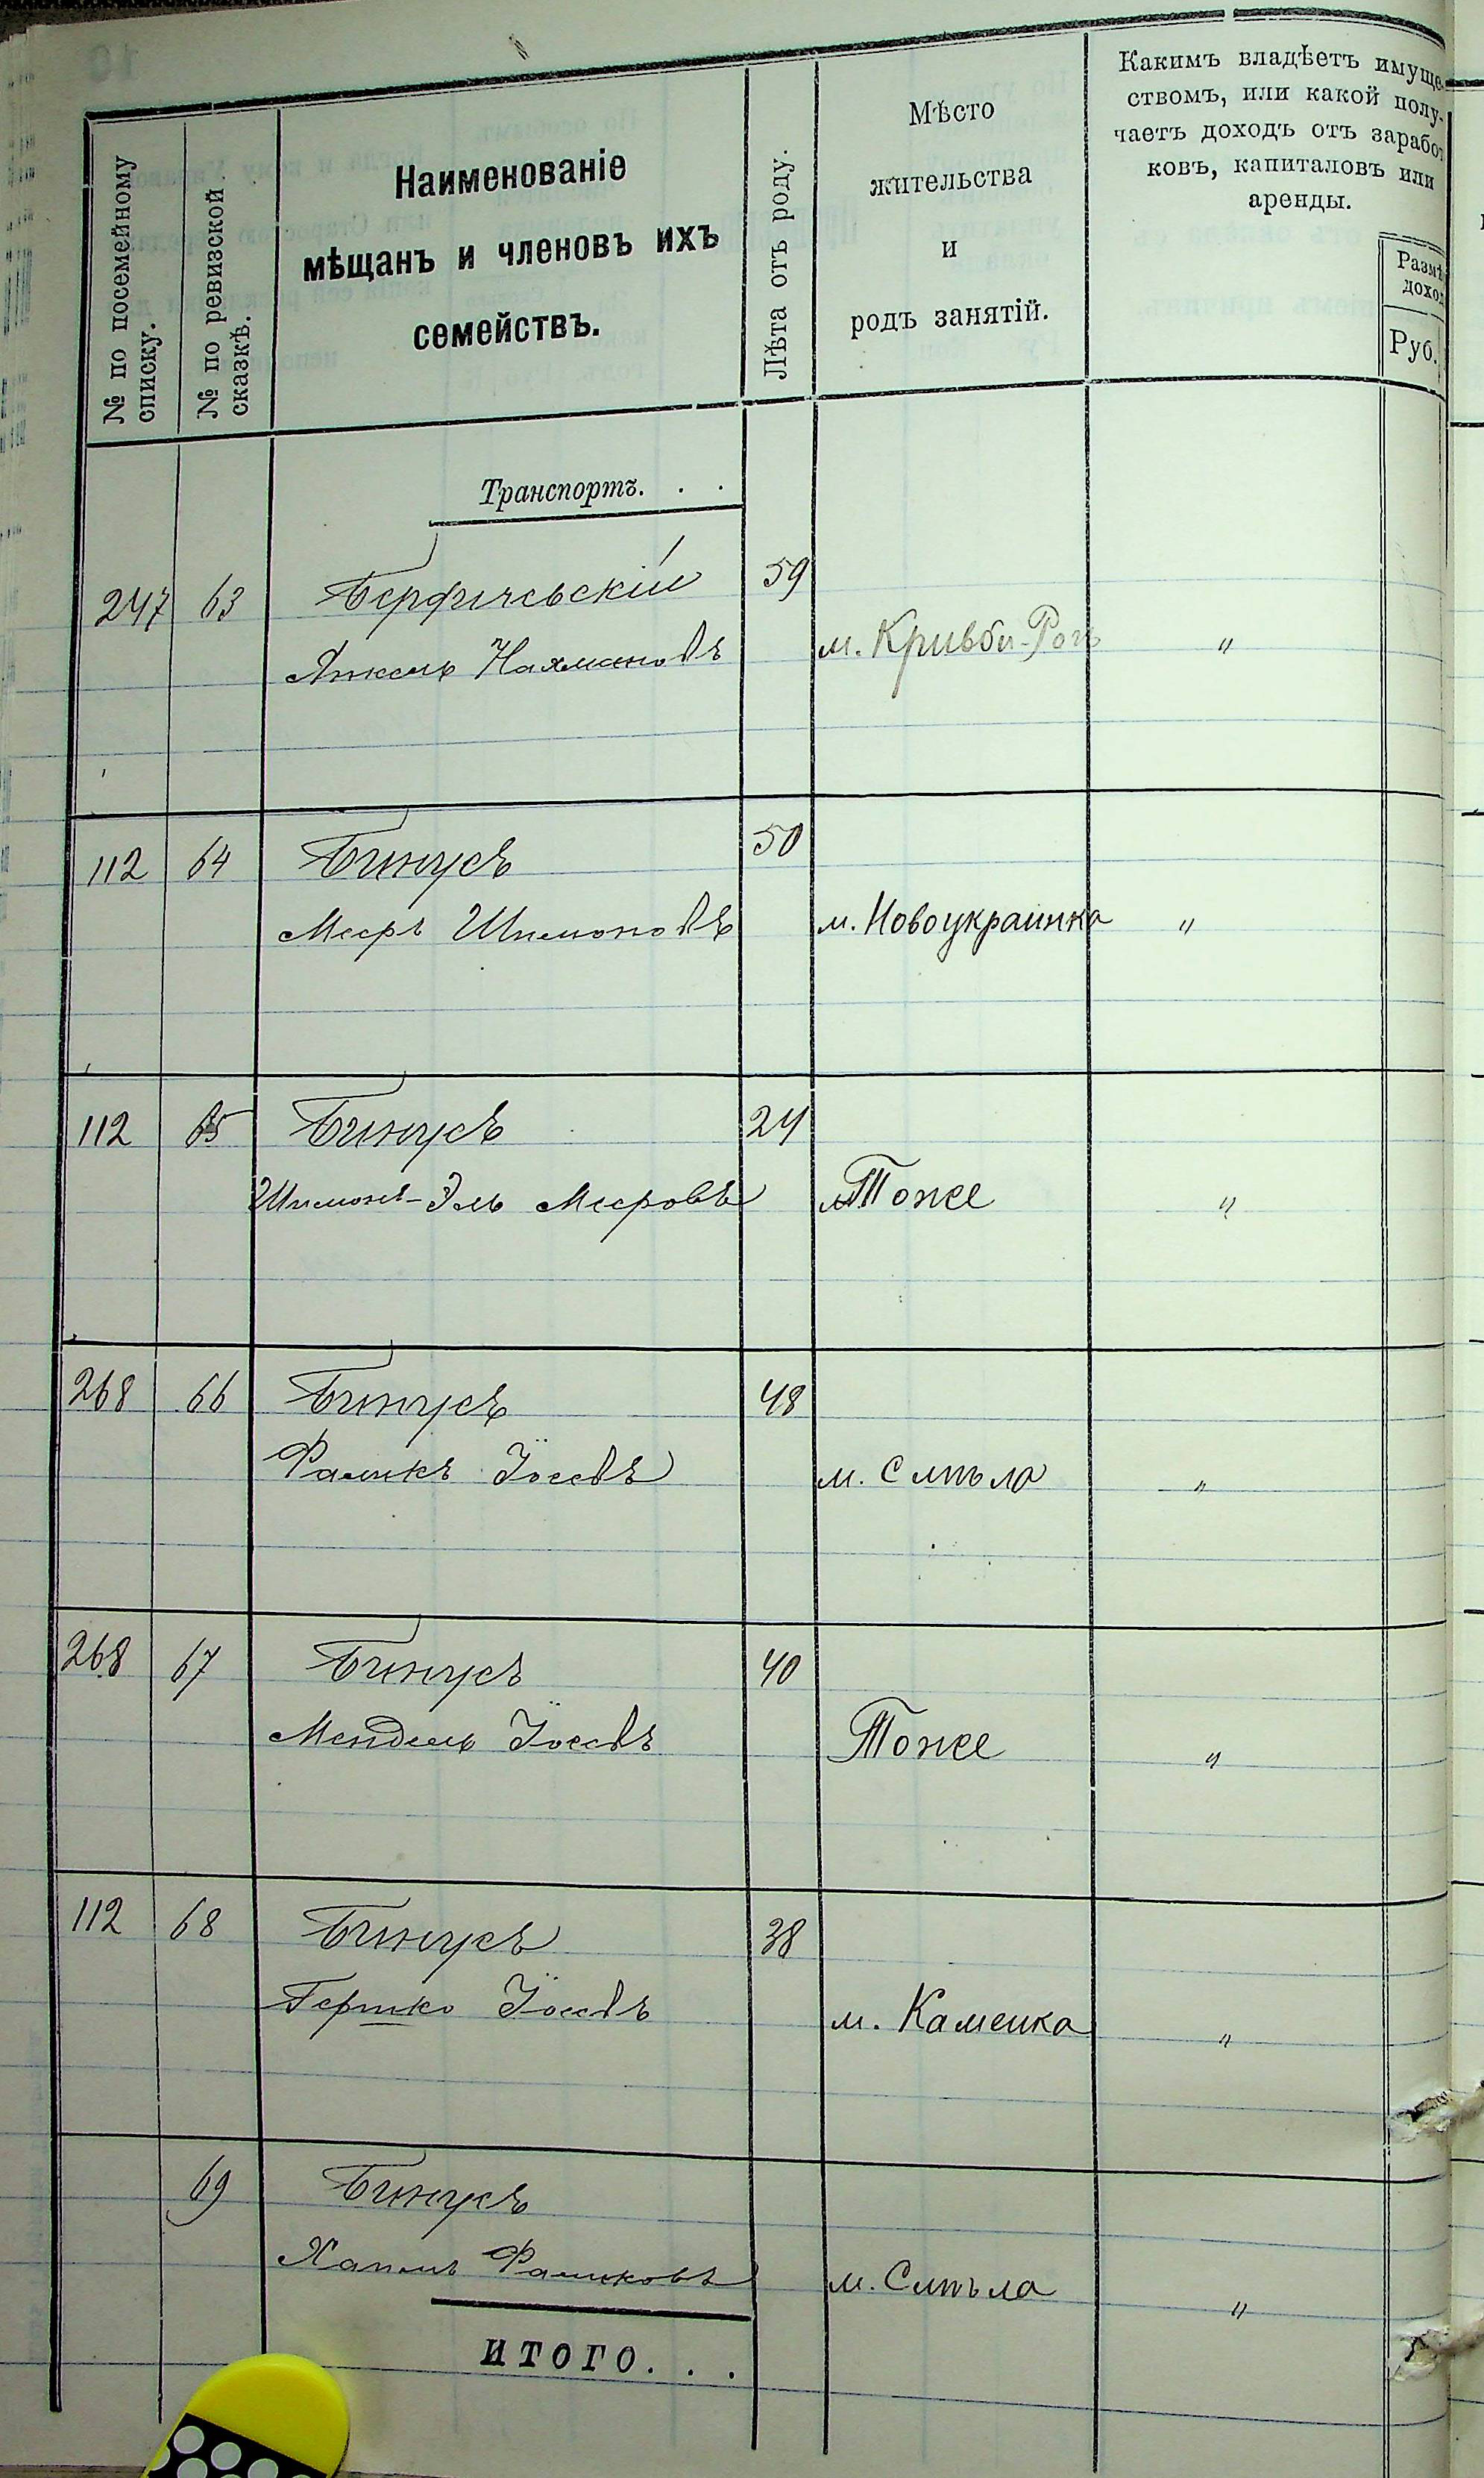 № по посемейному
списку.
№ по ревизской
сказкѣ.
Наименованіе
мѣщанъ и членовъ ихъ
семействъ.
Лѣта отъ роду.
Мѣсто
жительства
и
родъ занятій.
Какимъ владѣетъ имуще-
ствомъ, или какой полу-
чаетъ доходъ отъ зарабо
ковъ, капиталовъ или
аренды.
Размѣ
доход
Руб.
Транспортъ. . .
247 63 Бердичевскій 59
Анкель Нахмановъ м. Кривой-Рогъ "
112 64 Бинусъ 50
Мееръ Шимоновъ м. Новоукраинка "
112 65 Бинусъ 24
Шимонъ-Эль Мееровъ Тоже "
268 66 Бинусъ 48
Фаликъ Іосевъ м. Смѣла "
268 67 Бинусъ 40
Мендель Іосевъ Тоже "
112 68 Бинусъ 38
Гершко Іосевъ м. Каменка "
69 Бинусъ
Фаликовъ м. Смѣла "
ИТОГО. . .